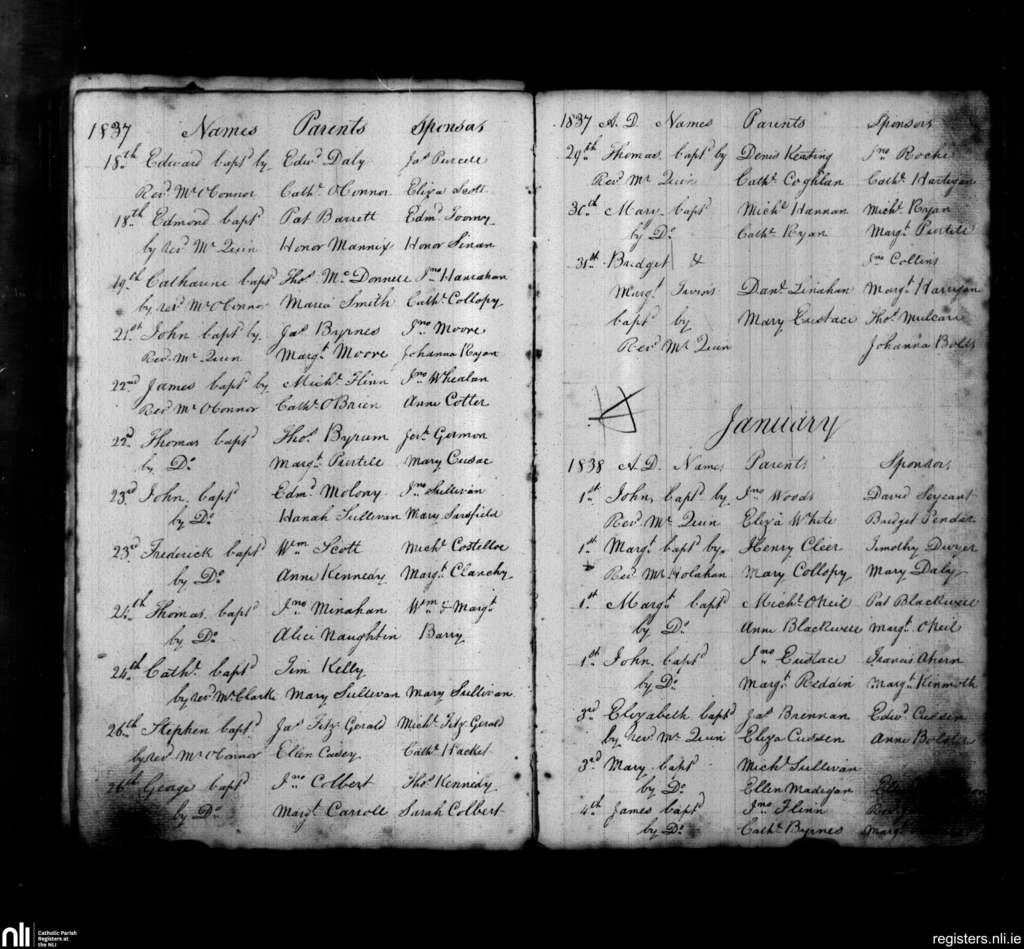 1837 Names Parents Sponsors
18th Edward bapd by Edwd Daly Jas Purcell
Revd Mr O'Connor Cathe OConnor Eliza Scott
18th Edmond bapd Pat Barrett Edmd Toomy
by revd Mr Quin Honor Mannix Honor Linan
19th Catharine bapd Thos McDonnell Jno Hanrahan
by revd Mr O'Connor Maria Smith Cathe Collopy
21st John bapd by Jas Byrnes Jno Moore
Revd Mr Quin Margt Moore Johanna Ryan
22nd James bapd by Michl Flinn Jno Whealan
Revd Mr O'Connor Cathe OBrien Anne Cotter
22d Thomas bapd Thos Byrum Gormon
by Do Margt Purtill Mary Cusac
23rd John bapd Edmd Molony Jno Sullivan
by Do Hanah Sullivan Mary Sarsfield
23rd Frederick bapd Wm Scott Michl Costelloe
by Do Anne Kennedy Margt Clanchy
24th Thomas bapd Jno Minahan Wm & Margt
by Do Alice Naughtin Barry
24th Cathe bapd Tim Kelly
by revd Mr Clark Mary Sullivan Mary Sullivan
26th Stephen bapd Jas Fitz Gerald Michl Fitz Gerald
by revd Mr O'Connor Ellen Casey Cathe Hacket
26th George bapd Jno Colbert Thos Kennedy
by Do Margt Carroll Sarah Colbert
1837 A.D. Names Parents Sponsors
29th Thomas bapd by Denis Keating Jno Roche
Revd Mr Quin Cathe Coghlan Cathe Hartigan
30th Mary bapd Michl Hannan Michl Ryan
by Do Cathe Ryan Margt Purtill
31st Bridget & Jno Collins
Margt Danl Linahan Margt Harrigan
bapd by Mary Eustace Thos Mulcare
Revd Mr Quin Johanna
January
1838 A.D. Names Parents Sponsors
1st John bapd by Jno Woods David Sergeant
Revd Mr Quin Eliza White Bridget Pender
1st Margt bapd by Henry Cleer Timothy Dwyer
Revd Mr Holahan Mary Collopy Mary Daly
1st Margt bapd Michl ONeil Pat Blackwell
by Do Anne Blackwell Margt ONeil
1st John bapd Jno Eustace Francis Ahern
by Do Margt Reddin Margt
3rd Elizabeth bapd Jas Brennan Edwd Cussen
by revd Mr Quin Eliza Cussen Anne Bolster
3rd Mary bapd Michl Sullivan
by Do Ellen Madigan
4th James bapd Jno Flinn
by Do Cathe Byrnes Margt
nli Catholic Parish
Registers at
the NLI
registers.nli.ie